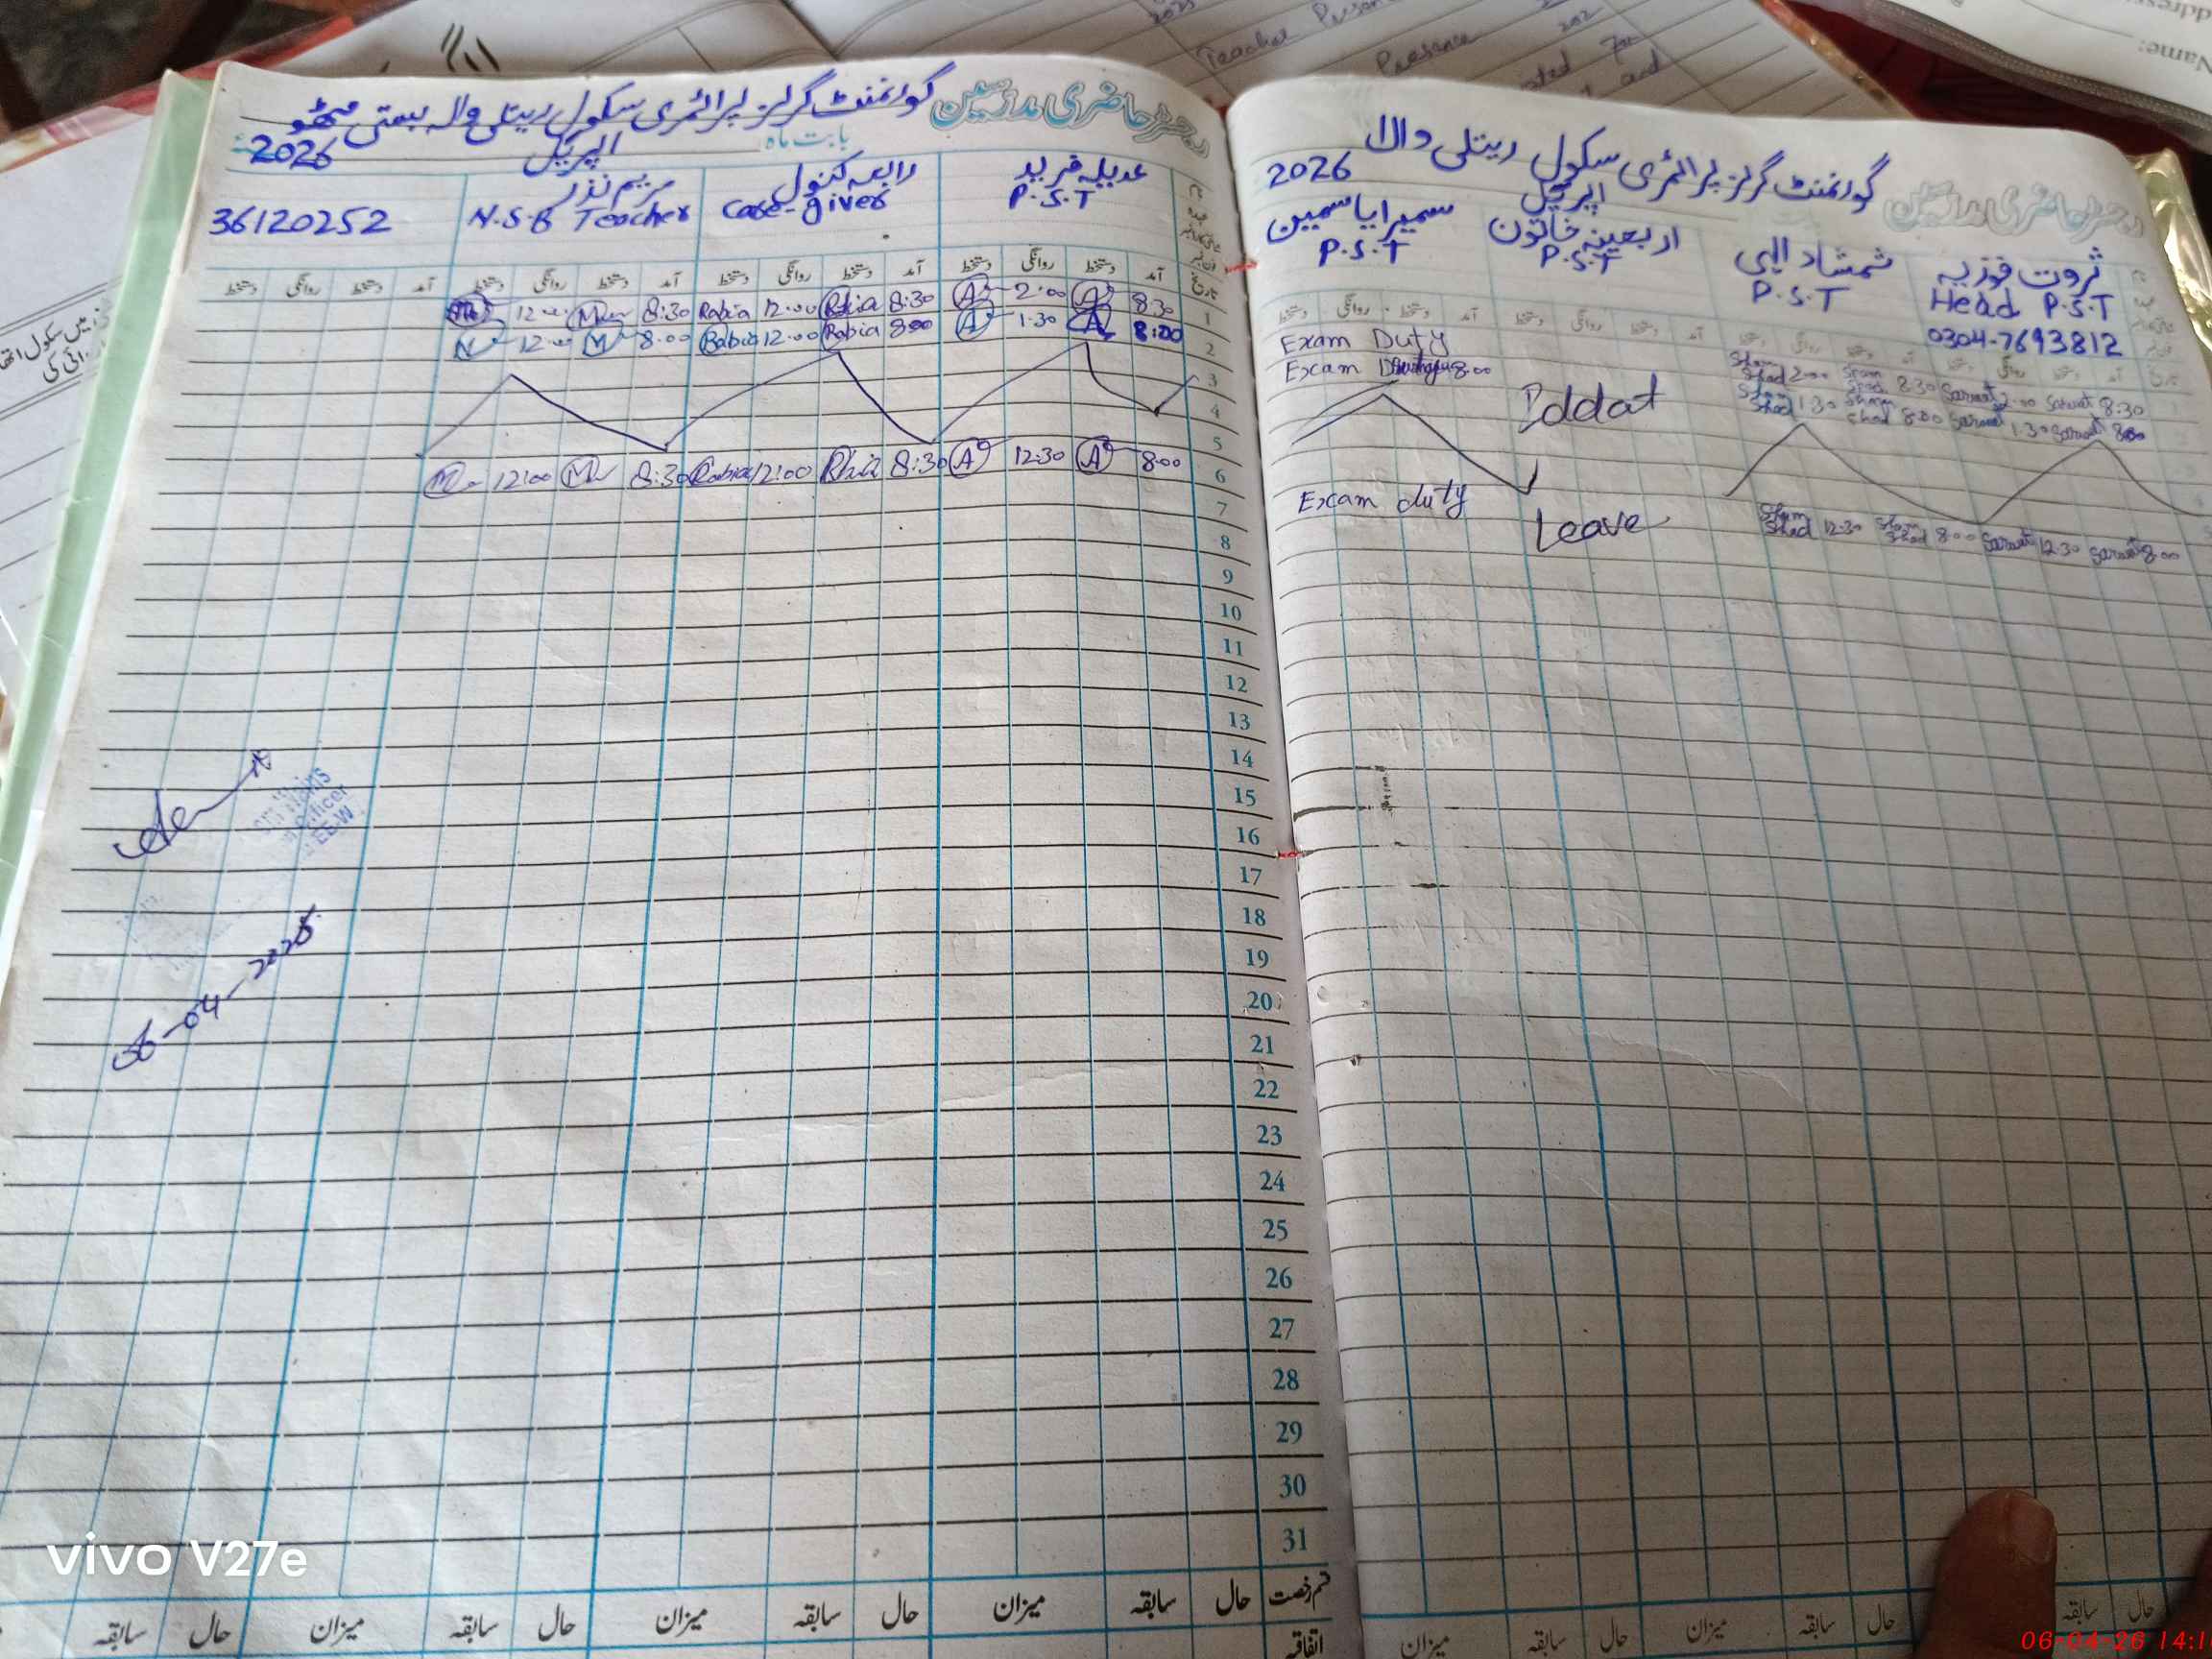 رجسٹر حاضری مدرسین
گورنمنٹ گرلز پرائمری سکول ریتلی والا
اپریل 2026
ثروت فوزیہ
Head P.S.T
0304-7693812
شمشاد الہی
P.S.T
اربعینہ خاتون
P.S.T
سمیرا یاسمین
P.S.T
آمد دستخط روانگی دستخط آمد دستخط روانگی دستخط
Exam Duty
Exam
Iddat
Sham Shad 2:00 Sham Shad 8:30 Sarwat 2:00 Sarwat 8:30
Sham Shad 1:30 Sham Shad 8:00 Sarwat 1:30 Sarwat 8:00
Exam duty
Leave
Sham Shad 12:30 Sham Shad 8:00 Sarwat 12:30 Sarwat 8:00
حال سابقہ میزان حال سابقہ میزان
رجسٹر حاضری مدرسین گورنمنٹ گرلز پرائمری سکول ریتلی والہ بستی مٹھو
بابت ماہ اپریل 2026
عدیلہ فرید
P.S.T
رابعہ کنول
Care-giver
مریم نذر
N.S.B Teacher
36120252
آمد دستخط روانگی دستخط آمد دستخط روانگی دستخط آمد دستخط روانگی دستخط آمد دستخط روانگی دستخط
1 8:30 A 2:00 A 8:30 Rabia 12:00 Rabia 8:30 M 12:00
2 8:00 A 1:30 A 8:00 Rabia 12:00 Rabia 8:00 M 12:00
3
4
5
6 8:00 A 12:30 A 8:30 Rabia 12:00 Rabia 8:30 M 12:00 M
7
8
9
10
11
12
13
14
15
16
17
18
19
20
21
22
23
24
25
26
27
28
29
30
31
قسم رخصت حال سابقہ میزان حال سابقہ میزان حال سابقہ میزان حال سابقہ
اتفاقیہ
officer
EE-W
06-04-2026
Teacher
Presence
Name:
vivo V27e
06-04-26 14:1